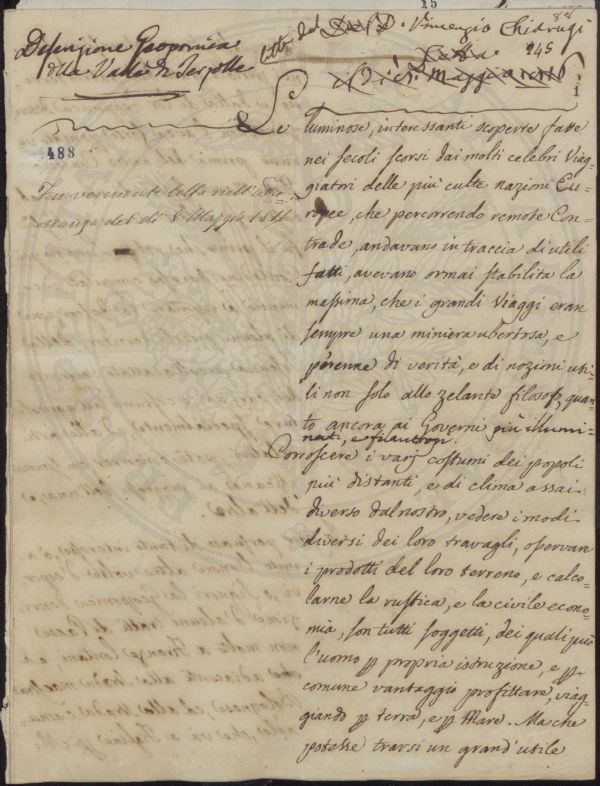 15
88
Descrizione Geoponica
della Valle di Terzolle
del Sig. D. Vincenzio Chiarugi
Letta
245
il dì 8. Maggio 1816
1
488
Fu veramente letta nell'adu-
nanza del dì 8 Maggio 1816
Le luminose, interessanti scoperte fatte
nei secoli scorsi dai molti celebri Viag-
giatori delle più culte nazioni Eu-
ropee, che percorrendo remote Con-
trade, andavano in traccia di utili
fatti, avevano ormai stabilita la
massima, che i grandi Viaggi eran
sempre una miniera ubertosa, e
perenne di verità, e di nozioni uti-
li non solo allo zelante filosofo, quan-
to ancora ai Governi più illumi-
nati, e filantropi.
Conoscere i varj costumi dei popoli
più distanti, e di clima assai
diverso dal nostro, vedere i modi
diversi dei loro travagli, osservare
i prodotti del loro terreno, e calco-
larne la rustica, e la civile econo-
mia, son tutti soggetti, dei quali può
l'uomo p propria istruzione, e p
comune vantaggio profittare, viag-
giando p terra, e p Mare. Ma che
potesse trarsi un grand'utile